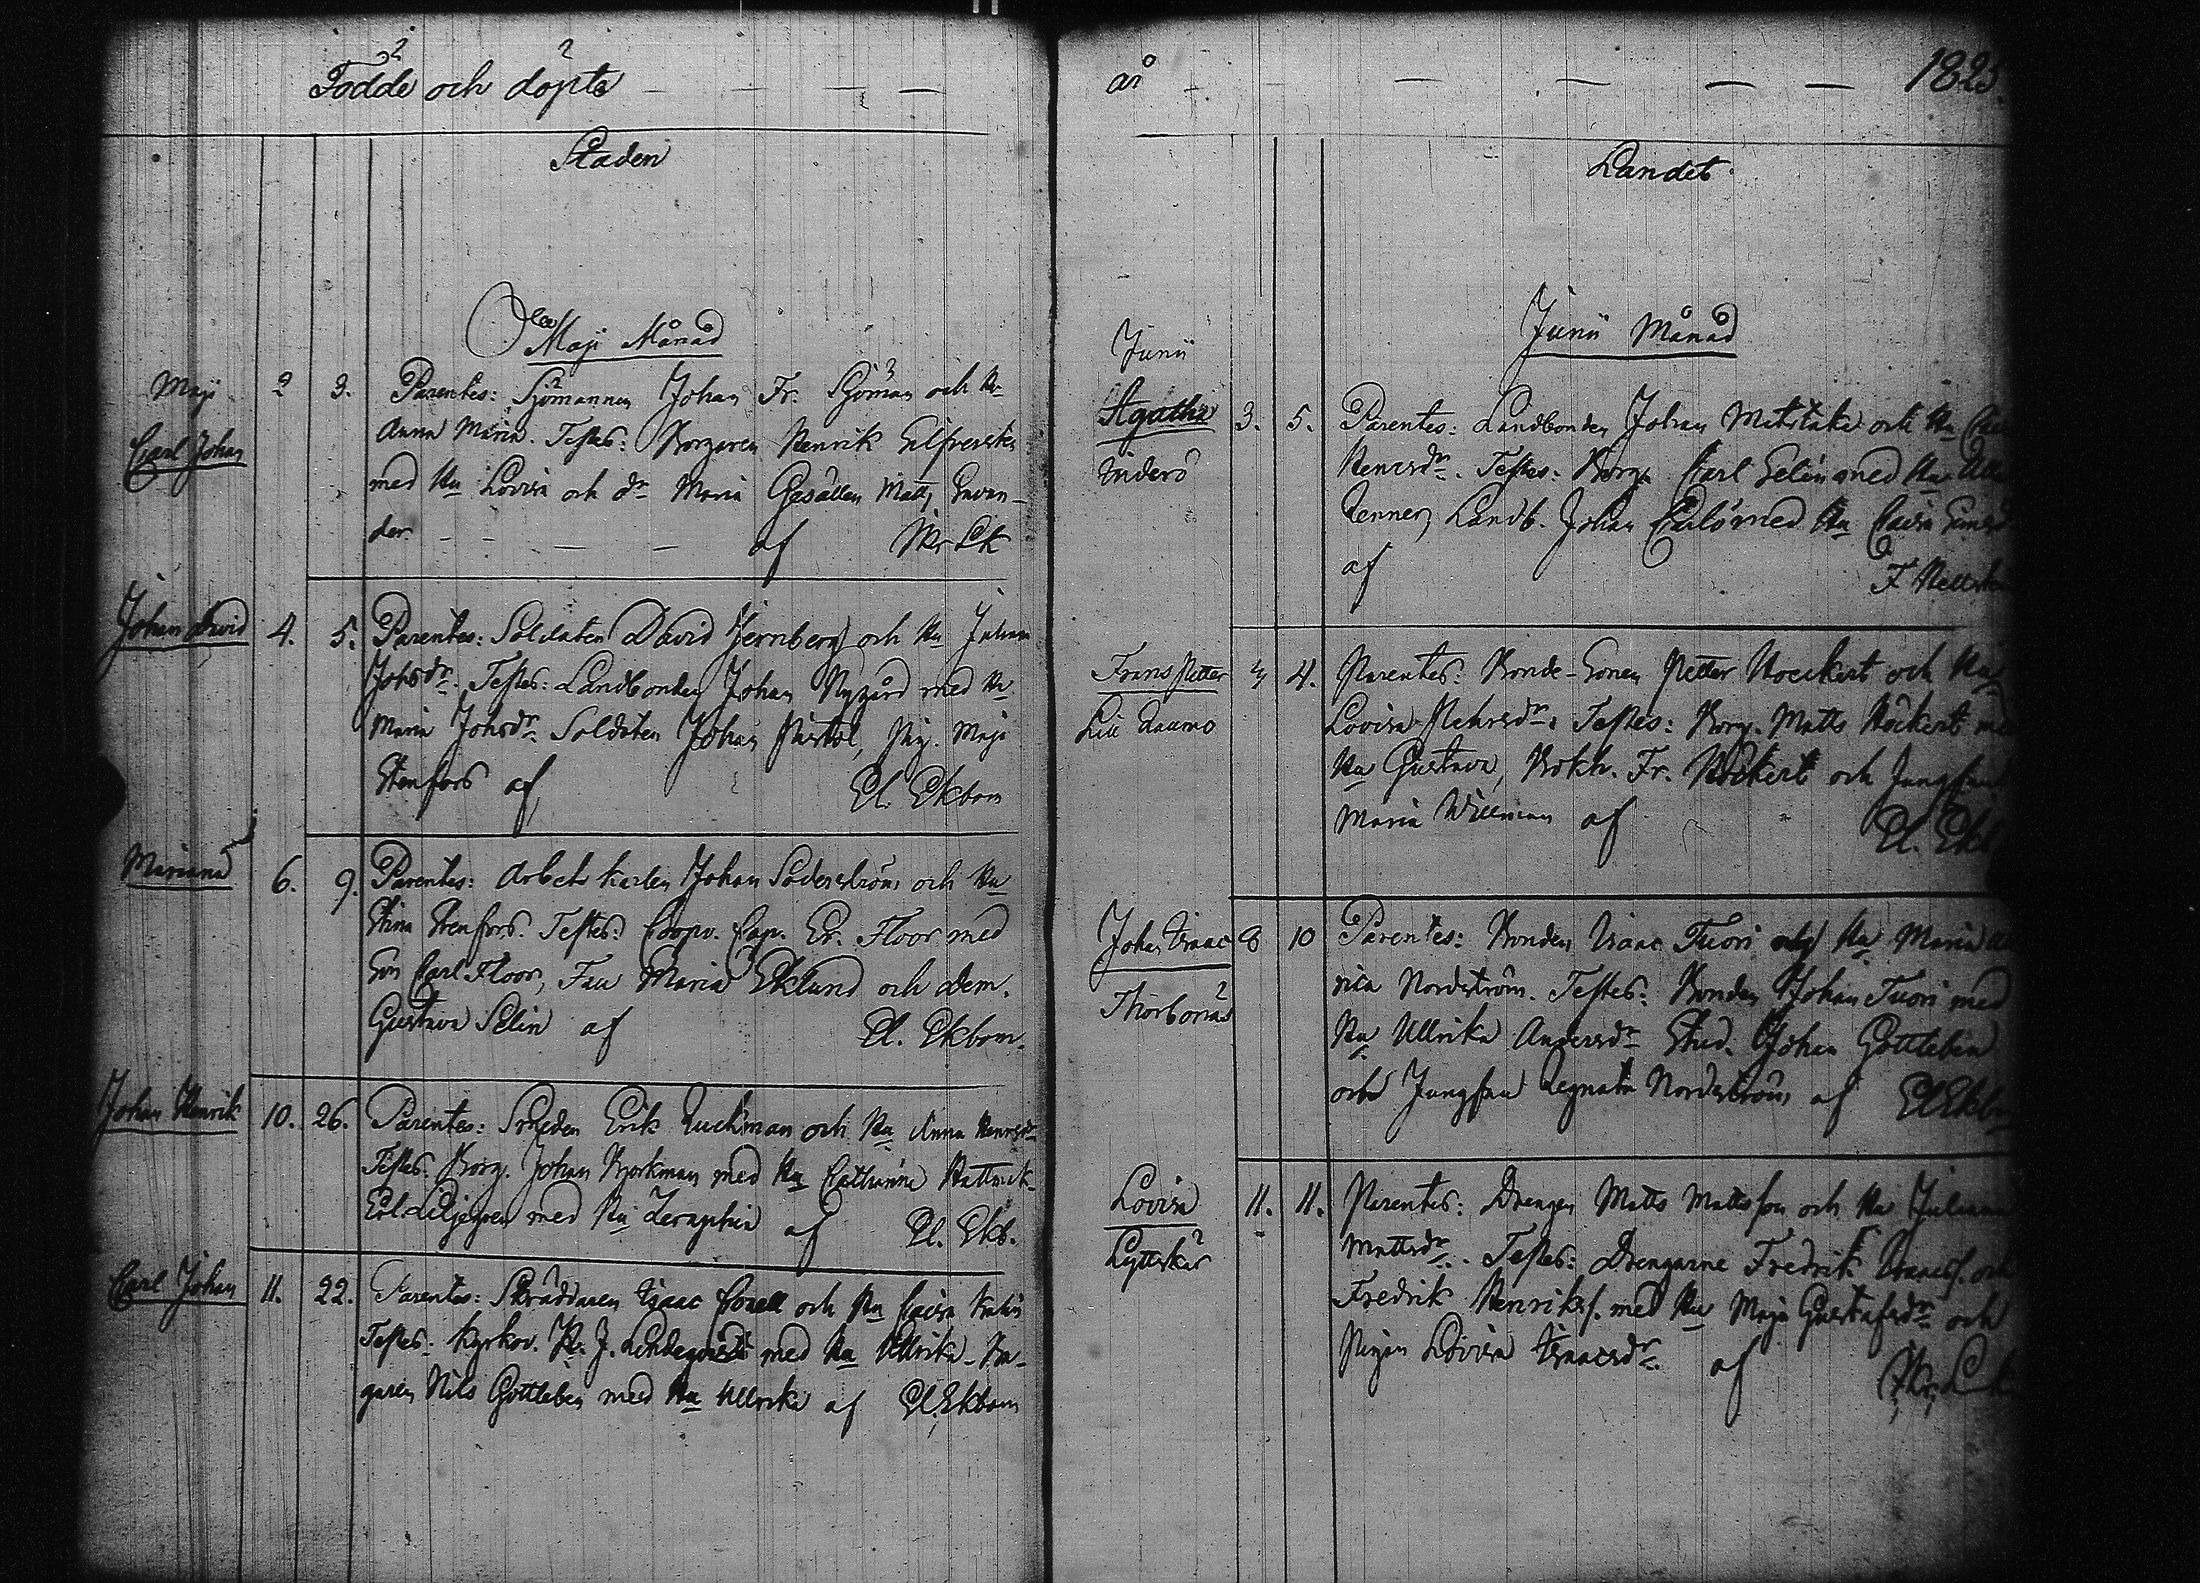 Födde och döpte
Staden
Maji Månad
Maji 2 3. Parentes: Sjömannen Johan Fr. Sjöman och Hu
Carl Johan
Anna Maria. Testes: Borgaren Henrik
med Hu Lovisa och dr Maria Gesällen Matts Evan-
der af
Johan David 4. 5. Parentes: Soldaten David Jernberg och Hu Johanna
Johsdr. Testes: Landbonden Johan Nygård med Hu
Maria Johsdr Soldaten Johan Pistol, Pig. Maja
Stenfors af El. Ekbom
Mariana 6. 9. Parentes: Arbets karlen Johan Söderström och Hu
Stina Stenfors. Testes: Coopv. Cap. Er. Floor med
Son Carl Floor, Fru Maria Eklund och Dem.
Gustava Selin af El. Ekbom.
Johan Henrik 10. 26. Parentes: Smeden Erik Ruckman och Hu Anna Henrsdr
Testes. Borg. Johan Björkman med Hu Cathrina
Liljegren med Hu Seraphia af El. Ekb.
Carl Johan 11. 22. Parentes: Skräddaren Isaac och Hu Caisa
Testes: med Hu Ullrika Ba-
garen Nils Gottleben med Hu Ullrika af El. Ekbom
år 1825.
Landet
Junii Månad
Junii
Agatha 3. 5. Parentes: Landbonden Johan och Hu
Inderö
Henrsdr. Testes: Borg. Carl Selin med Hu
Renner, Landb. Johan Carlö med Hu Caisa
af F.
Frans Petter 3 4. Parentes: Bonde-Sonen Petter Höckert och Hu
Lill Raumo
Lovisa Pehrsdr. Testes: Borg. Matts Höckert med
Hu Gustava, Bokh. Fr. Höckert och Jungfrun
Maria Willman af El. Ekb
Johan Isaac 8 10 Parentes: Bonden Isaac Tuori och Hu Maria
Thorbonäs
rica Nordström. Testes: Bonden Johan Tuori med
Hu Ullrika Andersdr Stud. Johan Gottleben
och Jungfru Regnata Nordström af El Ekbom
Lovisa 11. 11. Parentes: Drengen Matts Mattsson och Hu Juliana
Lyttskär
Mattsdr. Testes: Drengarne Fredrik Isacss. och
Fredrik Henrikss. med Hu Maja Gustafsdr och
Pigan Lovisa Isaacsdr. af